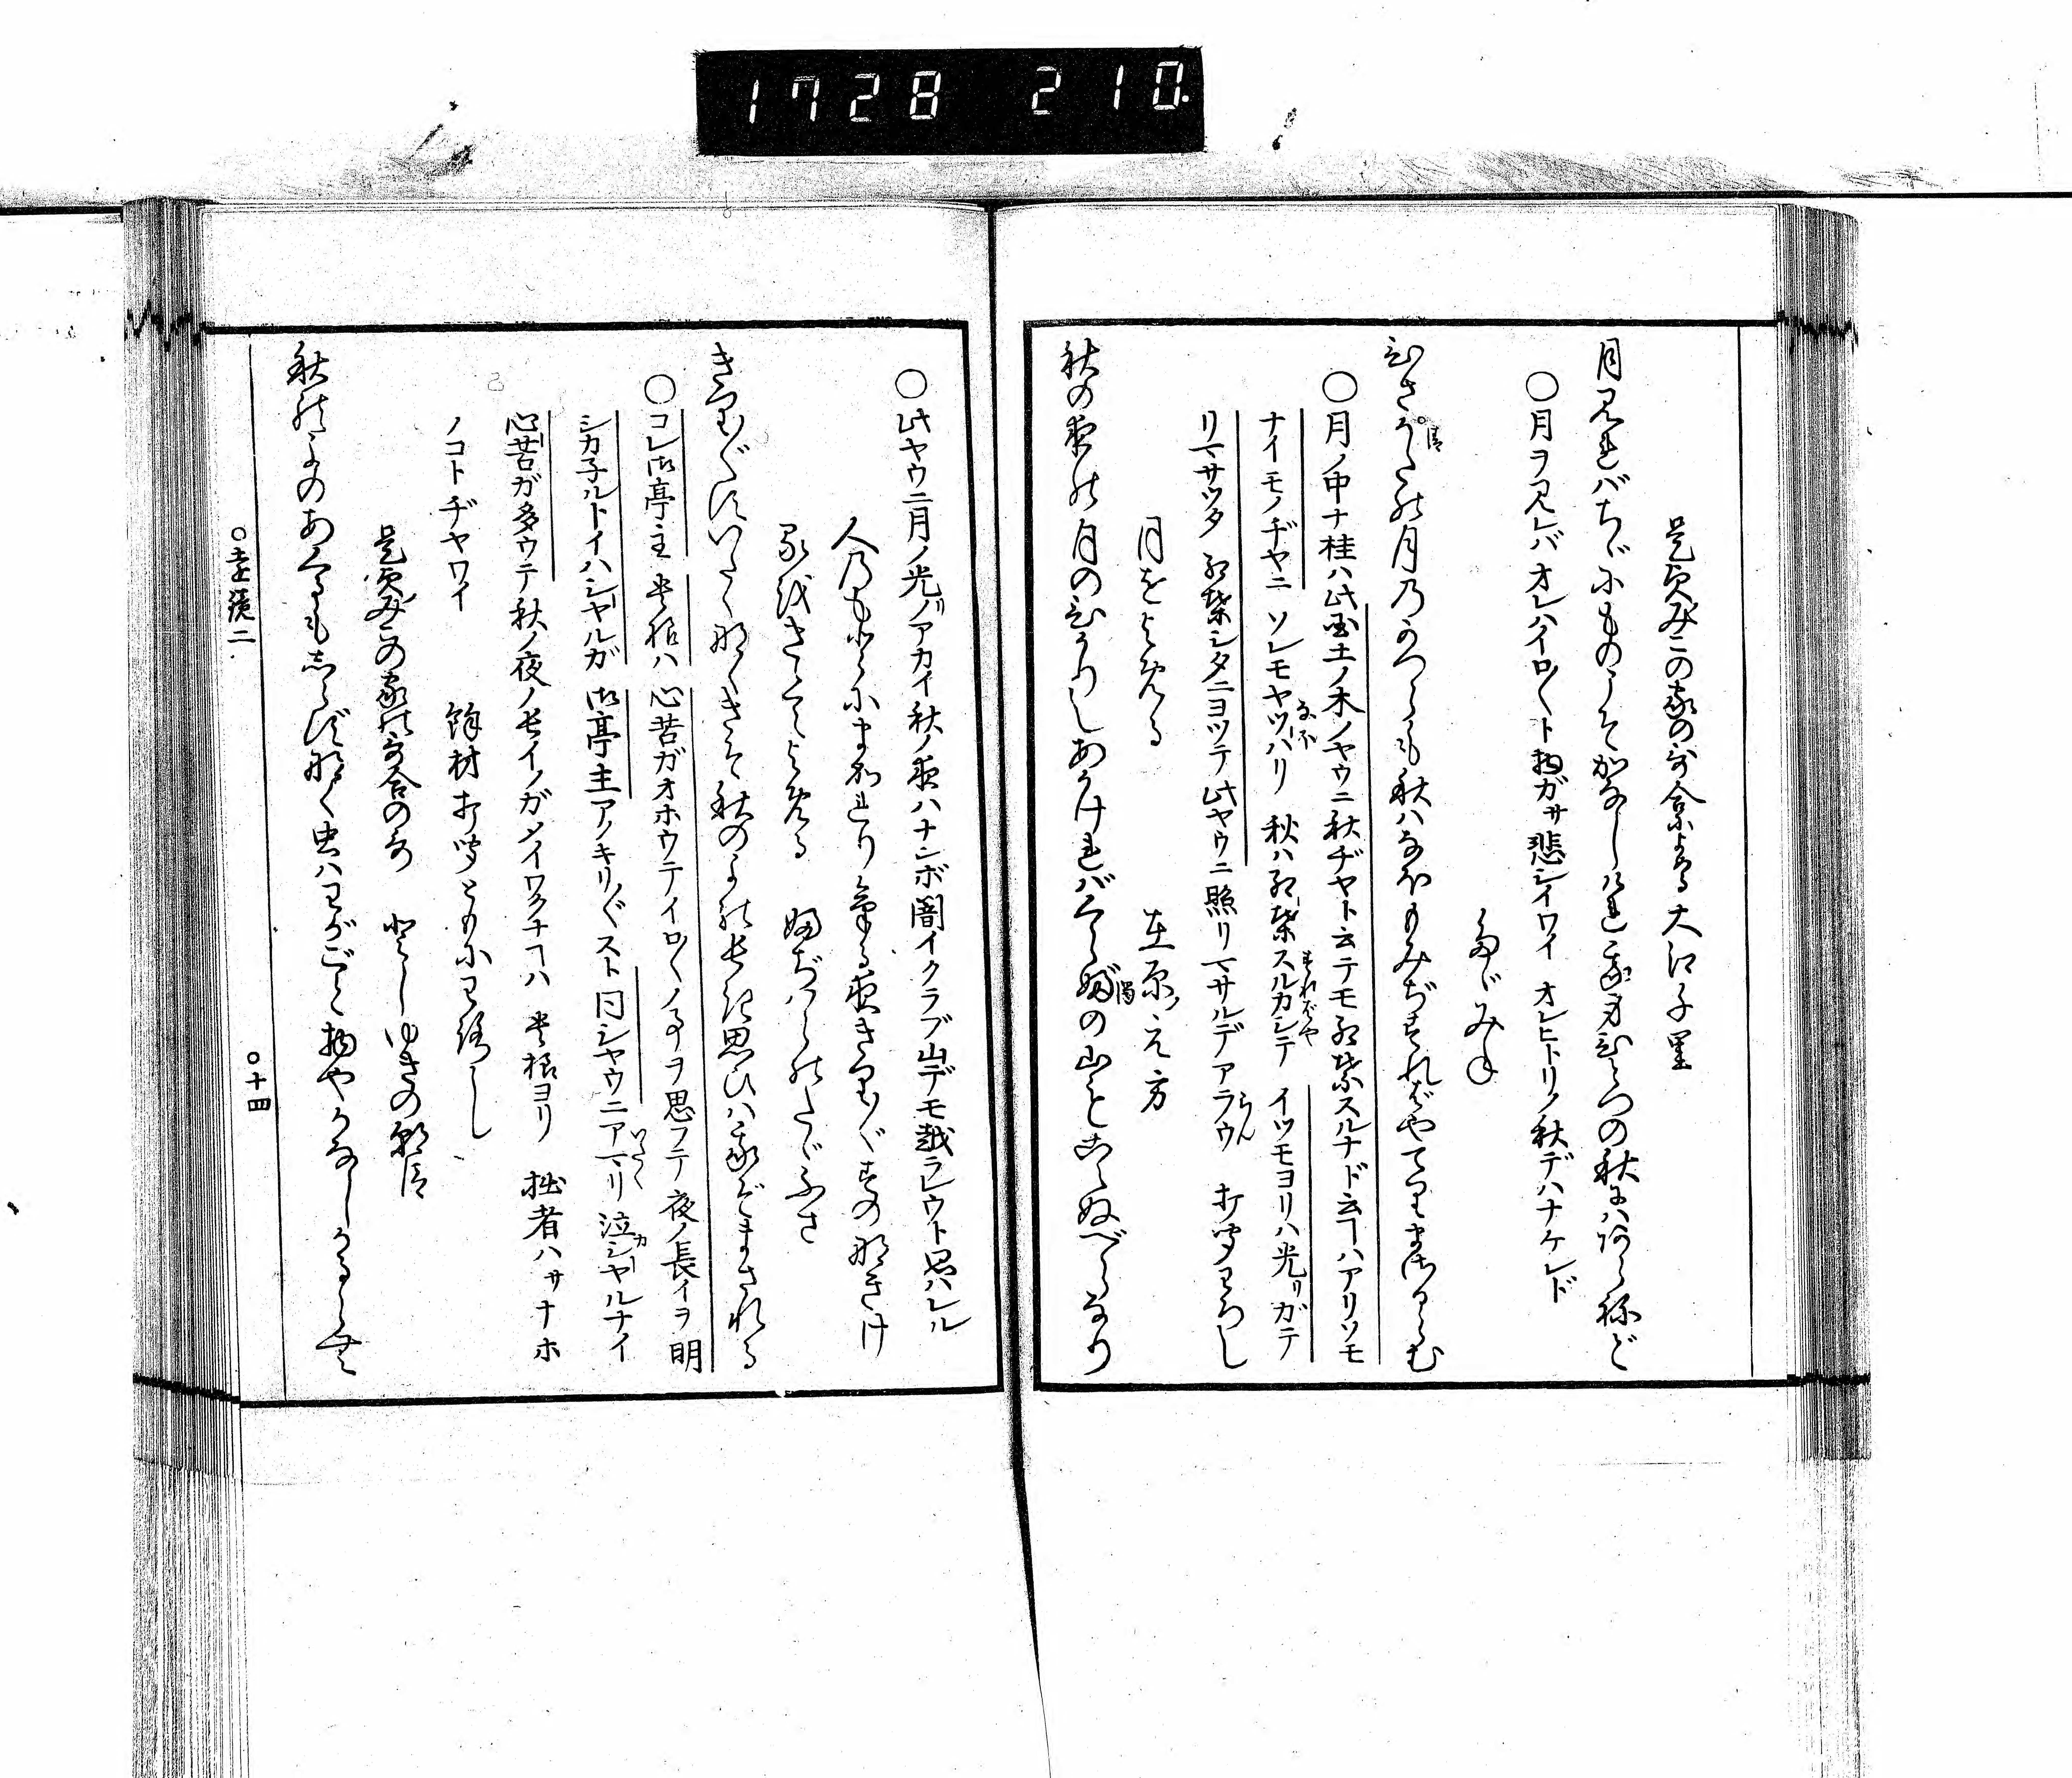 1728 210
是貞みこの家の哥合によめる 大江千里
月見ればちゞにものこそかなしけれ我身ひとつの秋にハあらねど
○月ヲ見レバ オレハイロ〱ト物ガサ悲シイワイ オレヒトリノ秋デハナケレド
たゞみね
ひさかたの月乃かつらも秋ハなほもみぢすればやてりまさるらむ
清
○月ノ中ナ桂ハ此国土ノ木ノヤウニ秋ヂヤト云テモ紅葉スルナド云ヿハアリソモ
ナイモノヂヤニ ソレモヤツハリ 秋ハ紅葉スルカシテ イツモヨリハ光リガテ
なほ
すればや
リマサツタ 紅葉シタニヨツテ此ヤウニ照リマサルデアラウ 打聞わろし
らん
月をよめる 在原ノ元方
秋の夜の月のひかりしあかければくらぶの山もこえぬべらなり
濁
○此ヤウニ月ノ光ノアカイ秋ノ夜ハナンボ闇イクラブ山デモ越ラレウト思ハルル
人乃もとにまかれりける夜きり〲すの那きけ
るをきゝてよめる 藤原のたゞふさ
きり〲すいたく那なきそ秋のよの長き思ひハ我ぞまされる
○コレ御亭主 貴様ハ 心苦ガオホウテイロ〱ノ事ヲ思フテ夜ノ長イヲ明
シカネルトイハシヤルガ 御亭主アノキリ〲スト同シヤウニアマリ泣シヤルナイ
いたく
カ
心苦ガ多ウテ秋ノ夜ノ長イノガメイワクナヿハ 貴様ヨリ 拙者ハサナホ
ノコトヂヤワイ 餘材打聞ともにわろし
是貞みこの家の哥合の哥 としゆきの朝臣
秋のよのあくるもしらず那く虫ハわがごと物やかなしかるらむ
○遠鏡二
○十四